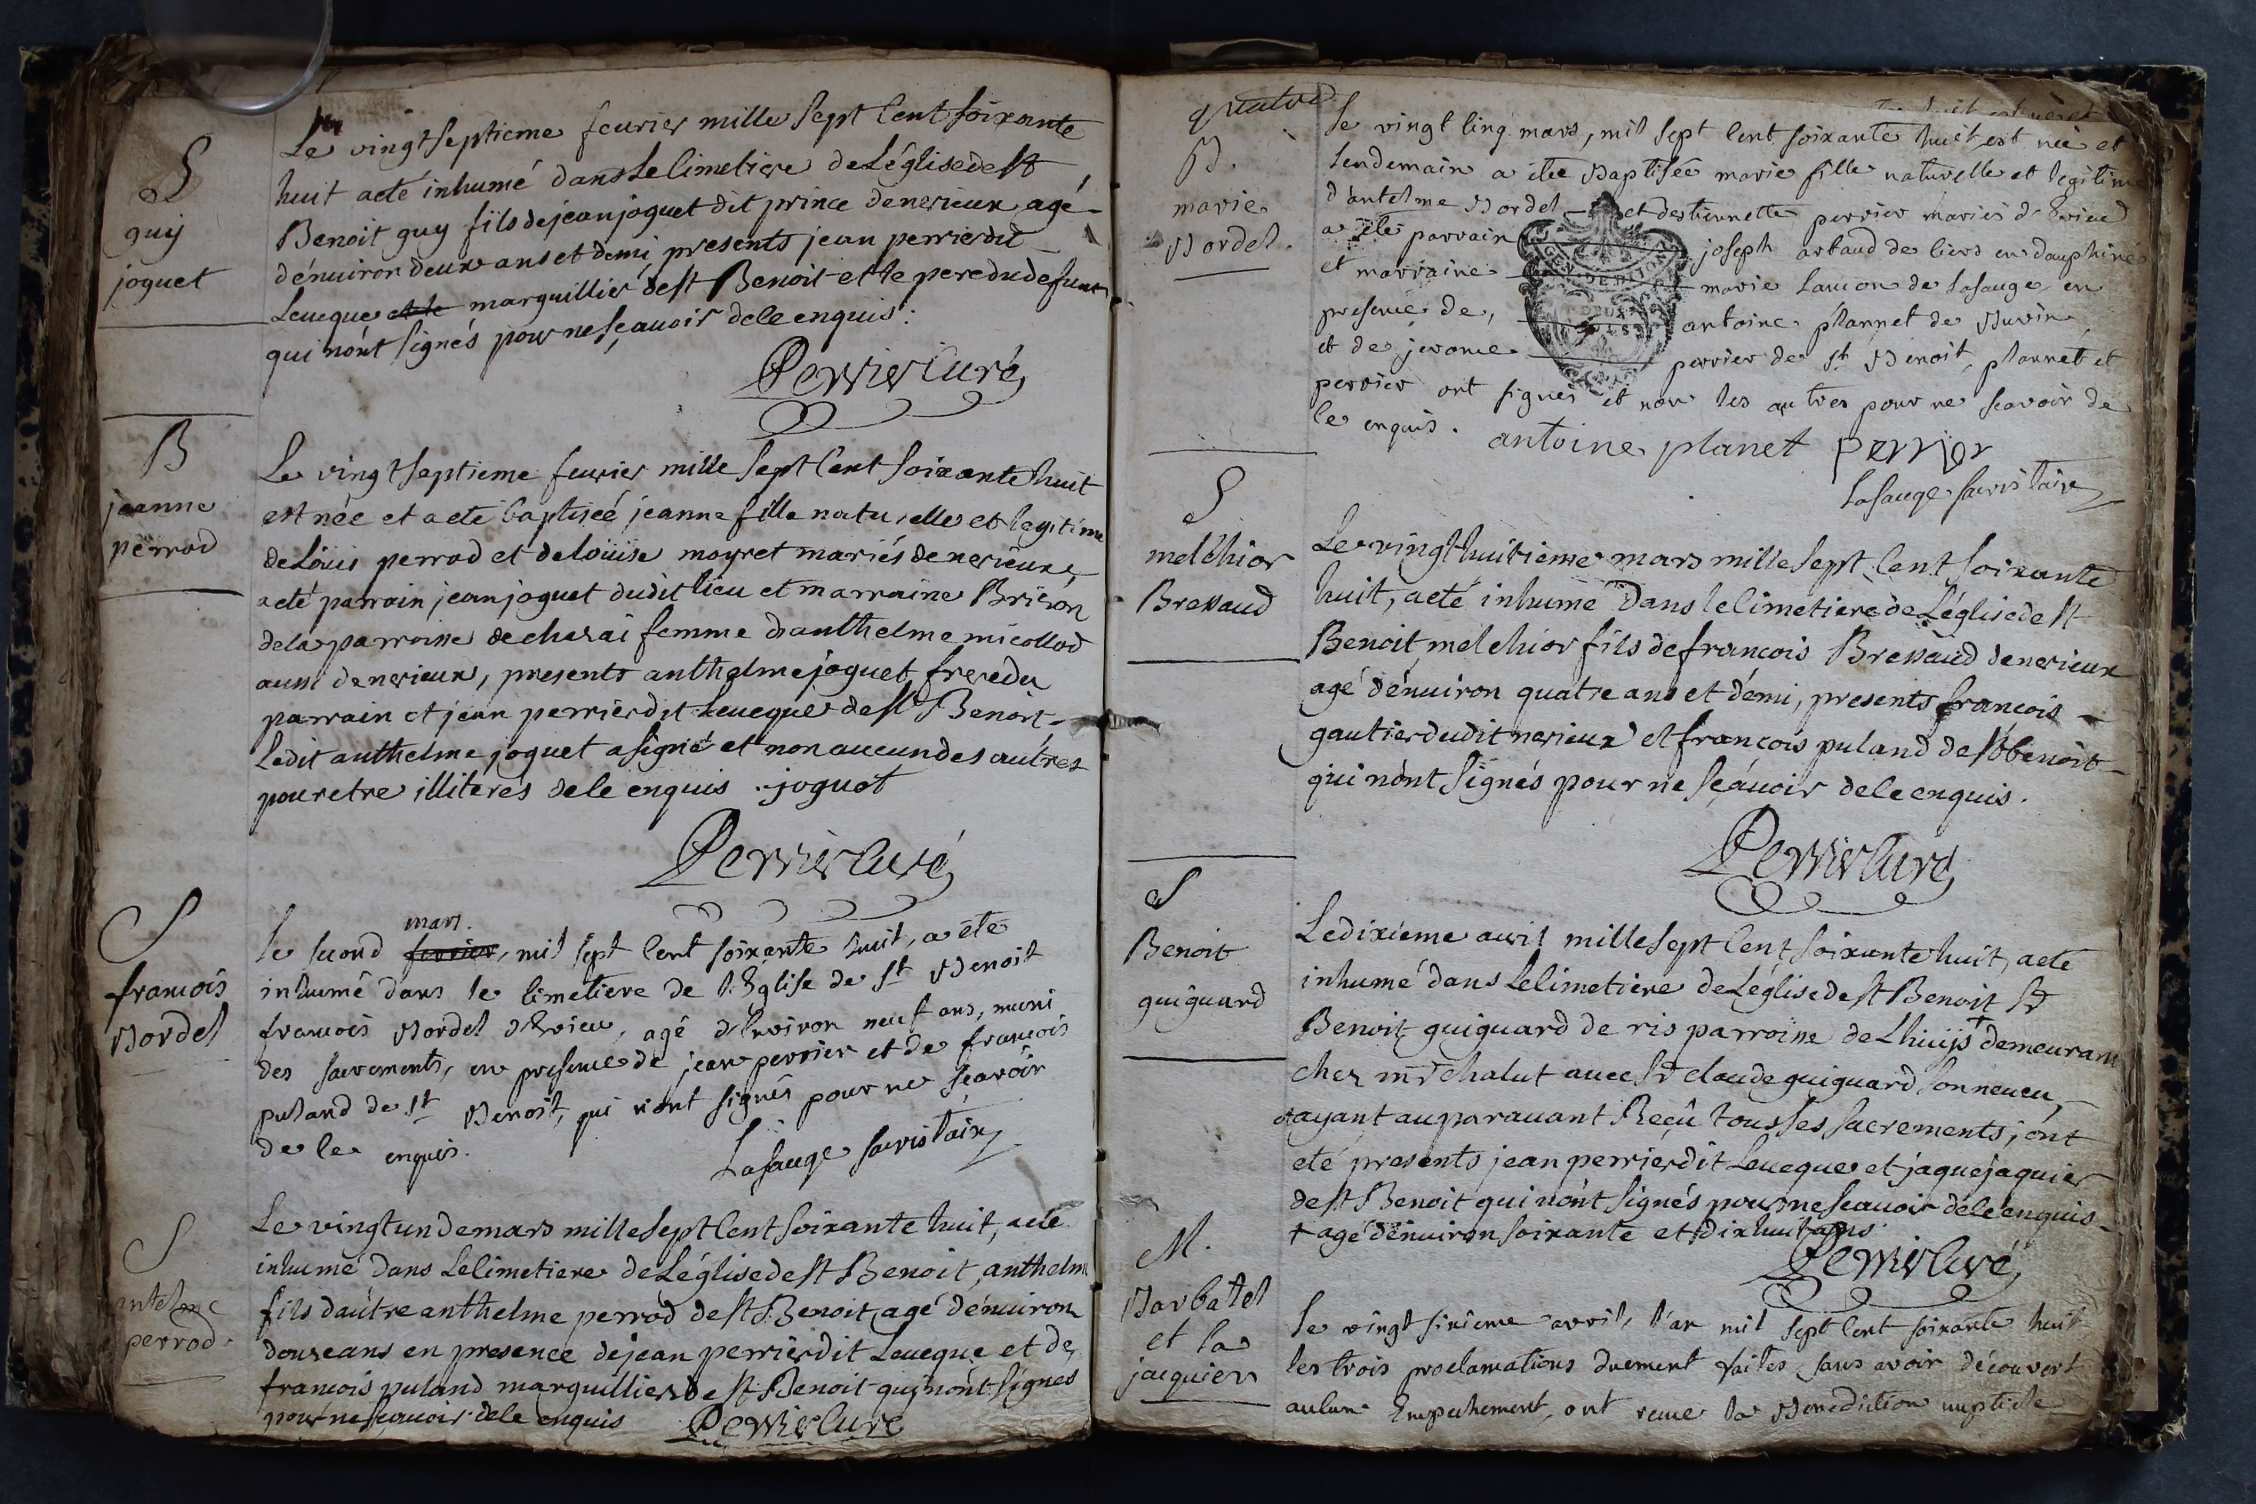 S
guy
joguet
Le vingtseptieme feurier mille sept Cent soixante
huit aeté inhumé dans Le Cimetiere de Léglise de st
Benoit guy fils de jean joguet dit prince de nerieux agé
dénuiron deux ans et demi, presents jean perrier dit
Leueque et le marguillier de st Benoit et le pere du defunt
qui nónt signés pour ne sçauoir de ce enquis.
Perrier Curé
B
jeanne
perrod
Le vingtseptieme feurier mille sept Cent soixante huit
est née et aeté baptisée jeanne fille naturelle et legitime
de Loüis perrod et de loüise moyret mariés de nerieux,
aeté parrain jean joguet dudit lieu et marraine Brison
de la parroisse de cherai femme danthelme micollod
aussi de nerieux, presents anthelme joguet frere du
parrain et jean perrier dit Leueque de st Benoit
Ledit anthelme joguet a signé et non aucun des autres
pour etre illiterés de ce enquis . joguet
Perrier Curé
S
francois
Bordel
Le second fevrier mars. mil sept Cent soixante huit, a été
inhumé dans le Cimetiere de l'Eglise de st Benoit
francois Bordel d'Evieu, agé d'Environ neuf ans, muni
des sacrements, en presence de jean perrier et de francois
puland de st Benoit, qui n'ont signés pour ne sçavoir
de ce enquis.
Lasauge sacristain
S
antelme
perrod.
Le vingtun de mars mille sept Cent soixante huit, aeté
inhumé dans Le Cimetiere de Léglise de st Benoit, anthelm
fils daútre anthelme perrod de st Benoit agé dénuiron
douze ans en presence de jean perrier dit Leueque et de
francois puland marguillier de st Benoit qui nónt signés
pour ne sçauoir de ce enquis Perrier Curé
B.
marie
Bordel.
Le vingt Cinq mars, mil sept Cent soixante huit, est née et
lendemain a été Baptisée marie fille naturelle et legitime
d'antelme Bordel et d'estiennette perrier mariés d'Evieu
a été parrain joseph arbaud de Ciers en dauphiné
et marraine marie Lancon de Lasauge, en
presence de, antoine plannet de Buvin
et de jerome perrier de st Benoit, plannet et
perrier ont signés et non les autres pour ne sçavoir de
ce enquis. antoine planet perrier
Lasauge sacristain
GEN. DE DIJON
DEUX SOLS
S
melchior
Bressaud
Le vingthuitieme mars mille sept Cent soixante
huit, aeté inhumé Dans le Cimetiere de Léglise de st
Benoit, melchior fils de francois Bressaud de nerieux
agé dénuiron quatre ans et démi, presents francois
gautier dudit nerieux et francois puland de st benoit
qui nónt signés pour ne sçauoir de ce enquis.
Perrier Curé
S
Benoit
guiguard
Le dixieme auril mille sept Cent soixante huit, aeté
inhumé dans Le Cimetiere de Léglise de st Benoit Sr
Benoit guiguard de ris parroisse de Lhuijs + demeurant
chez mr chalut auec Sr claude guiguard son neueu,
ayant auparauant Reçû tous ses sacrements; ont
eté presents jean perrier dit Leueque et jaque jaquier
de st Benoit qui nónt signés pour ne scauoir de ce enquis
+ agé dénuiron soixante et dixhuit ans
Perrier Curé
M.
Barbatel
et la
jacquier
Le vingt sixième avril, l'an mil sept Cent soixante huit
les trois proclamations duement faites, sans avoir découvert
aucun Empechement, ont reçue la Benediction nuptiale